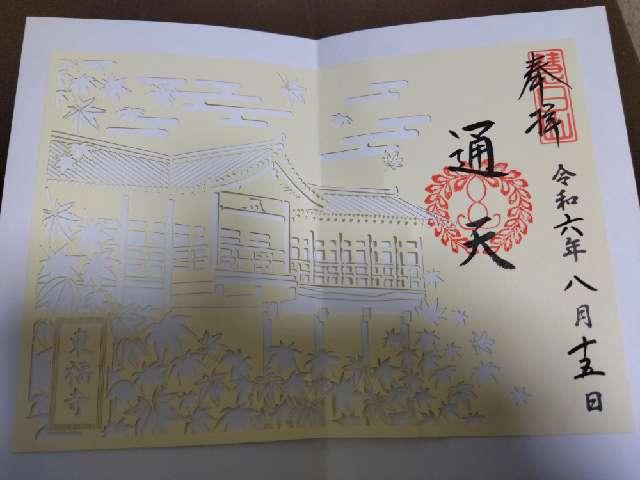 奉拝
慧日山
令和六年八月十五日
通天
東福寺